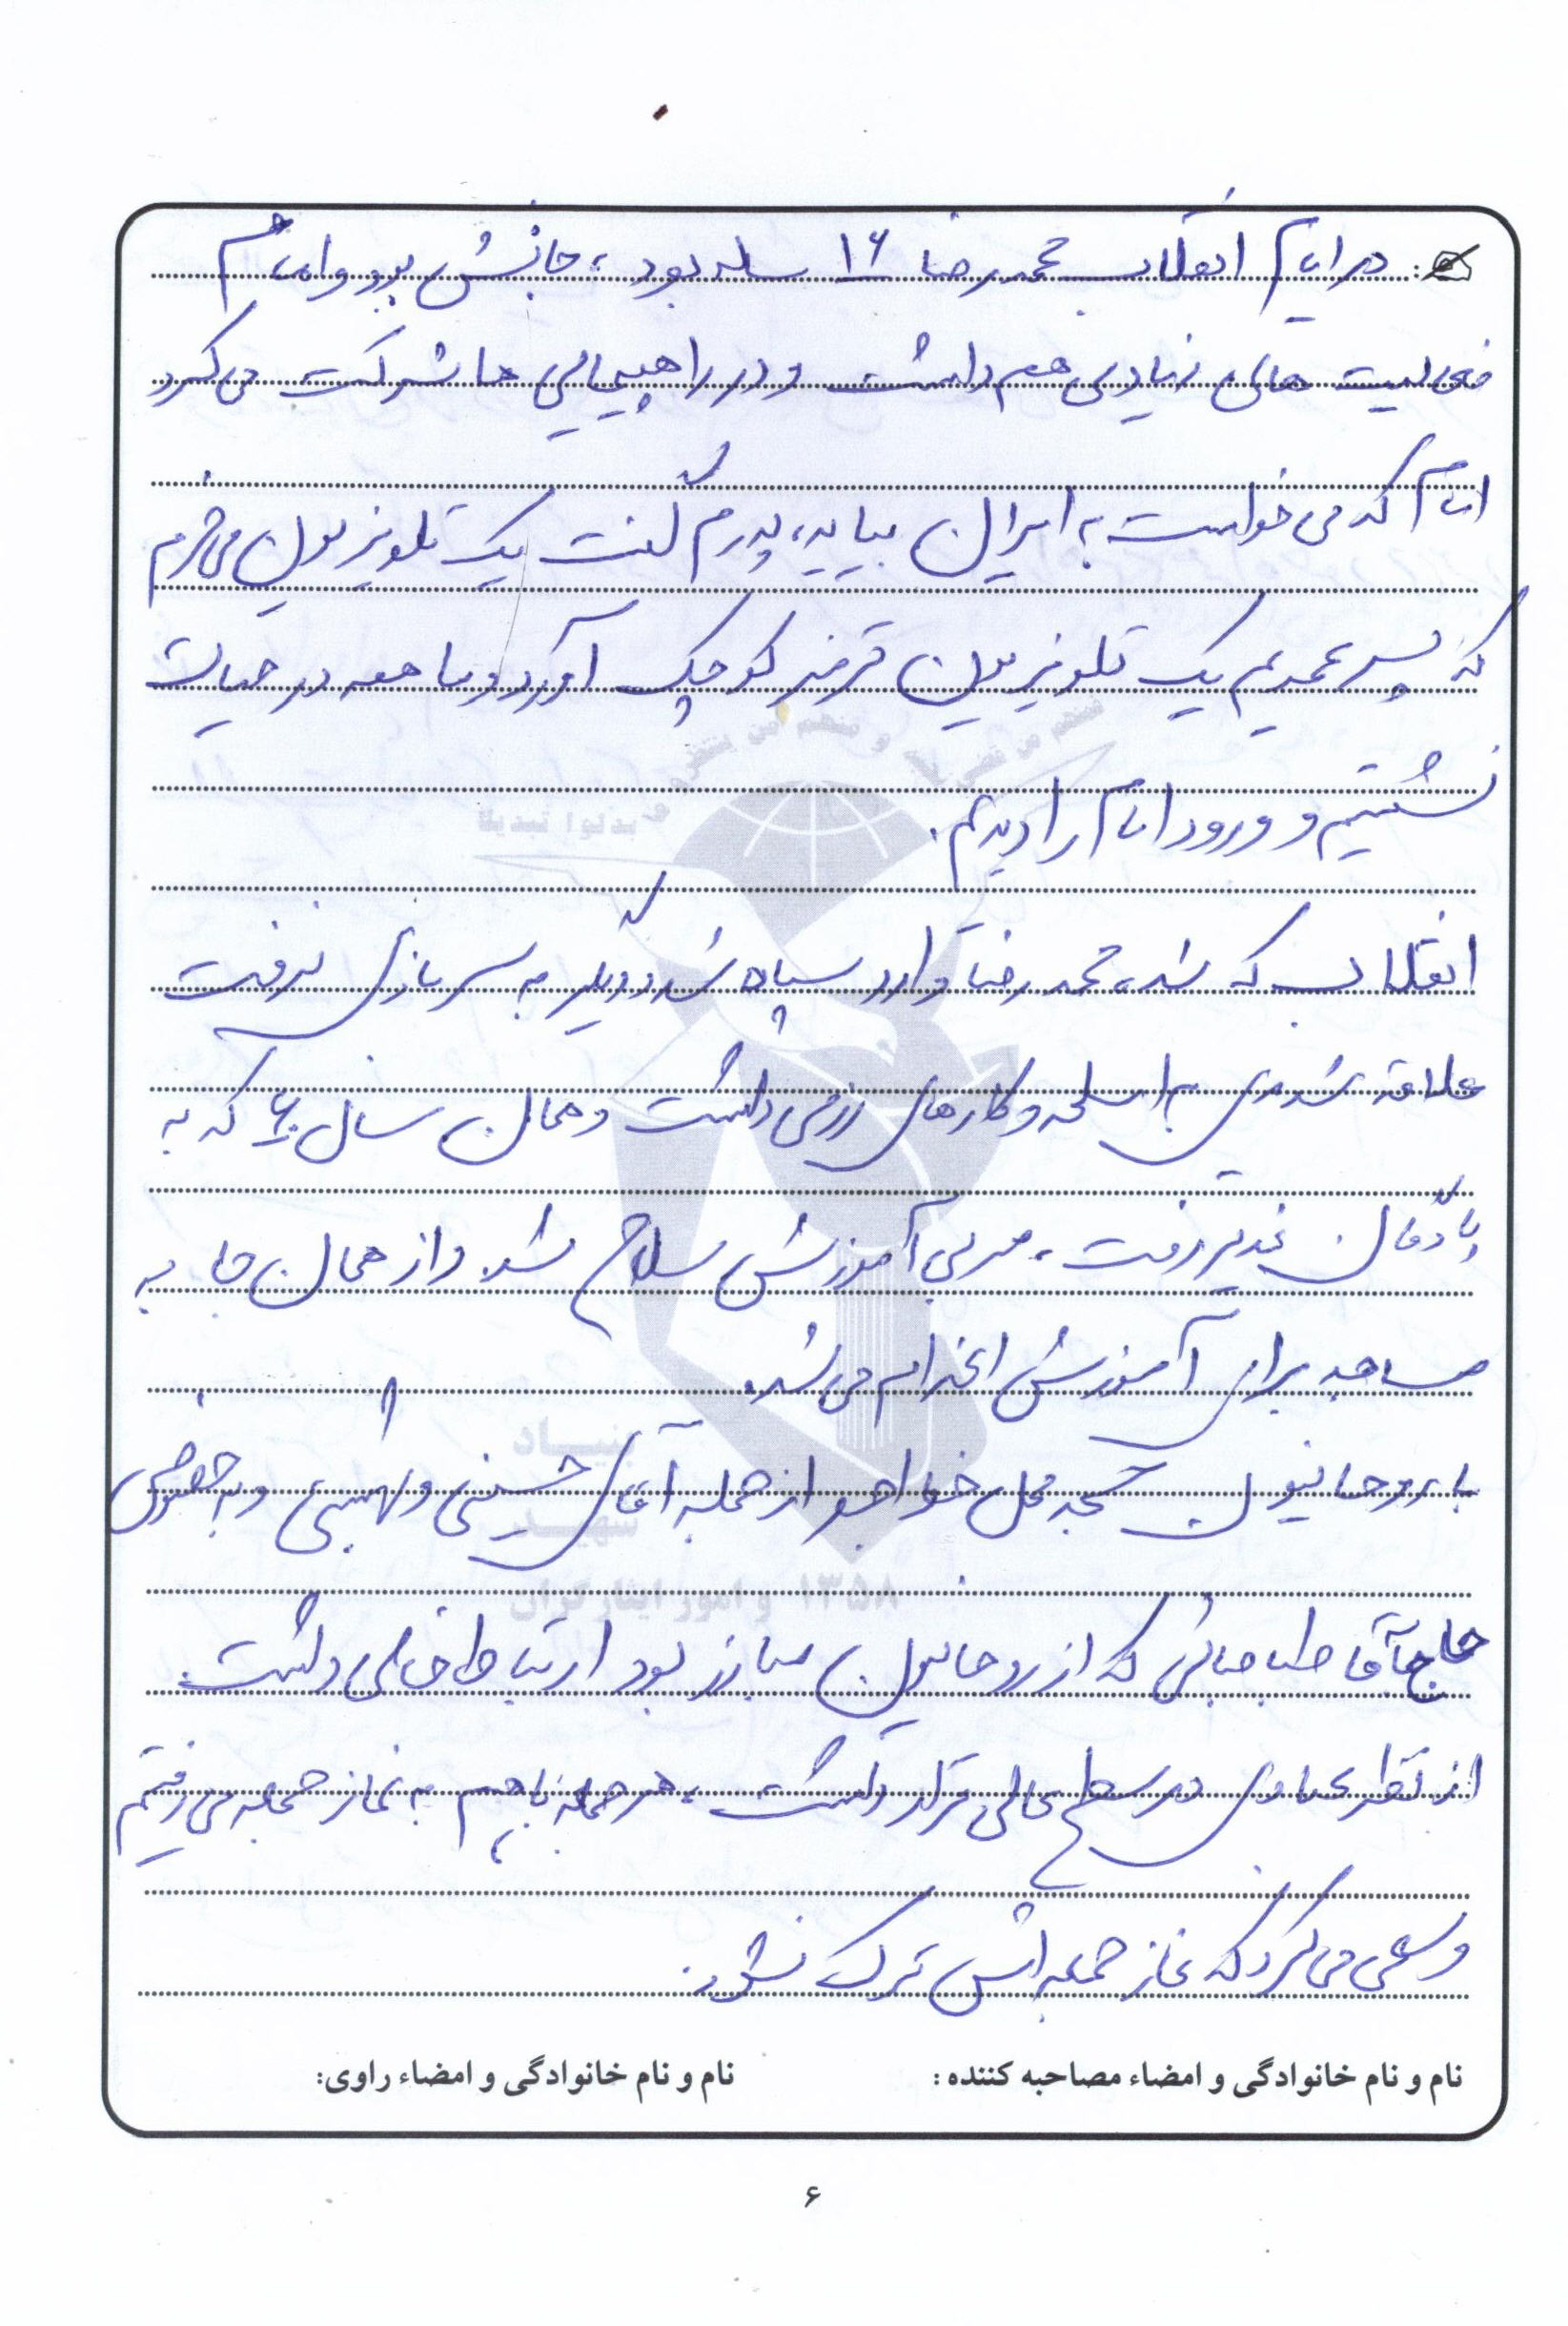 در ایام انقلاب محمدرضا ۱۶ ساله بود، جانش بود و امام
فعالیت های زیادی هم داشت و در راهپیمایی ها شرکت می کرد
امام که می خواست به ایران بیاید، پدرم گفت یک تلویزیون می خرم
که پسر عمه یم یک تلویزیون قرمز کوچک آورد و ما همه در حیاط
نشستیم و ورود امام را دیدیم.
انقلاب که شد، محمدرضا وارد سپاه شد و دیگر به سربازی نرفت
علاقه شدیدی به اسلحه و کارهای رزمی داشت و همان سال ۶۰ که به
پادگان غدیر رفت، مربی آموزش سلاح شد. و از همان جا به
مساجد برای آموزش اعزام می شد.
با روحانیون مسجد محل خواجو از جمله آقای حسینی و بهشتی و به خصوص
حاج آقا طباطبائی که از روحانیون مبارز بود ارتباط خاصی داشت.
از نظر عبادی در سطح عالی قرار داشت، هر جمعه باهم به نماز جمعه می رفتیم
و سعی می کرد که نماز جمعه اش ترک نشود.
نام و نام خانوادگی و امضاء مصاحبه کننده : نام و نام خانوادگی و امضاء راوی:
۶